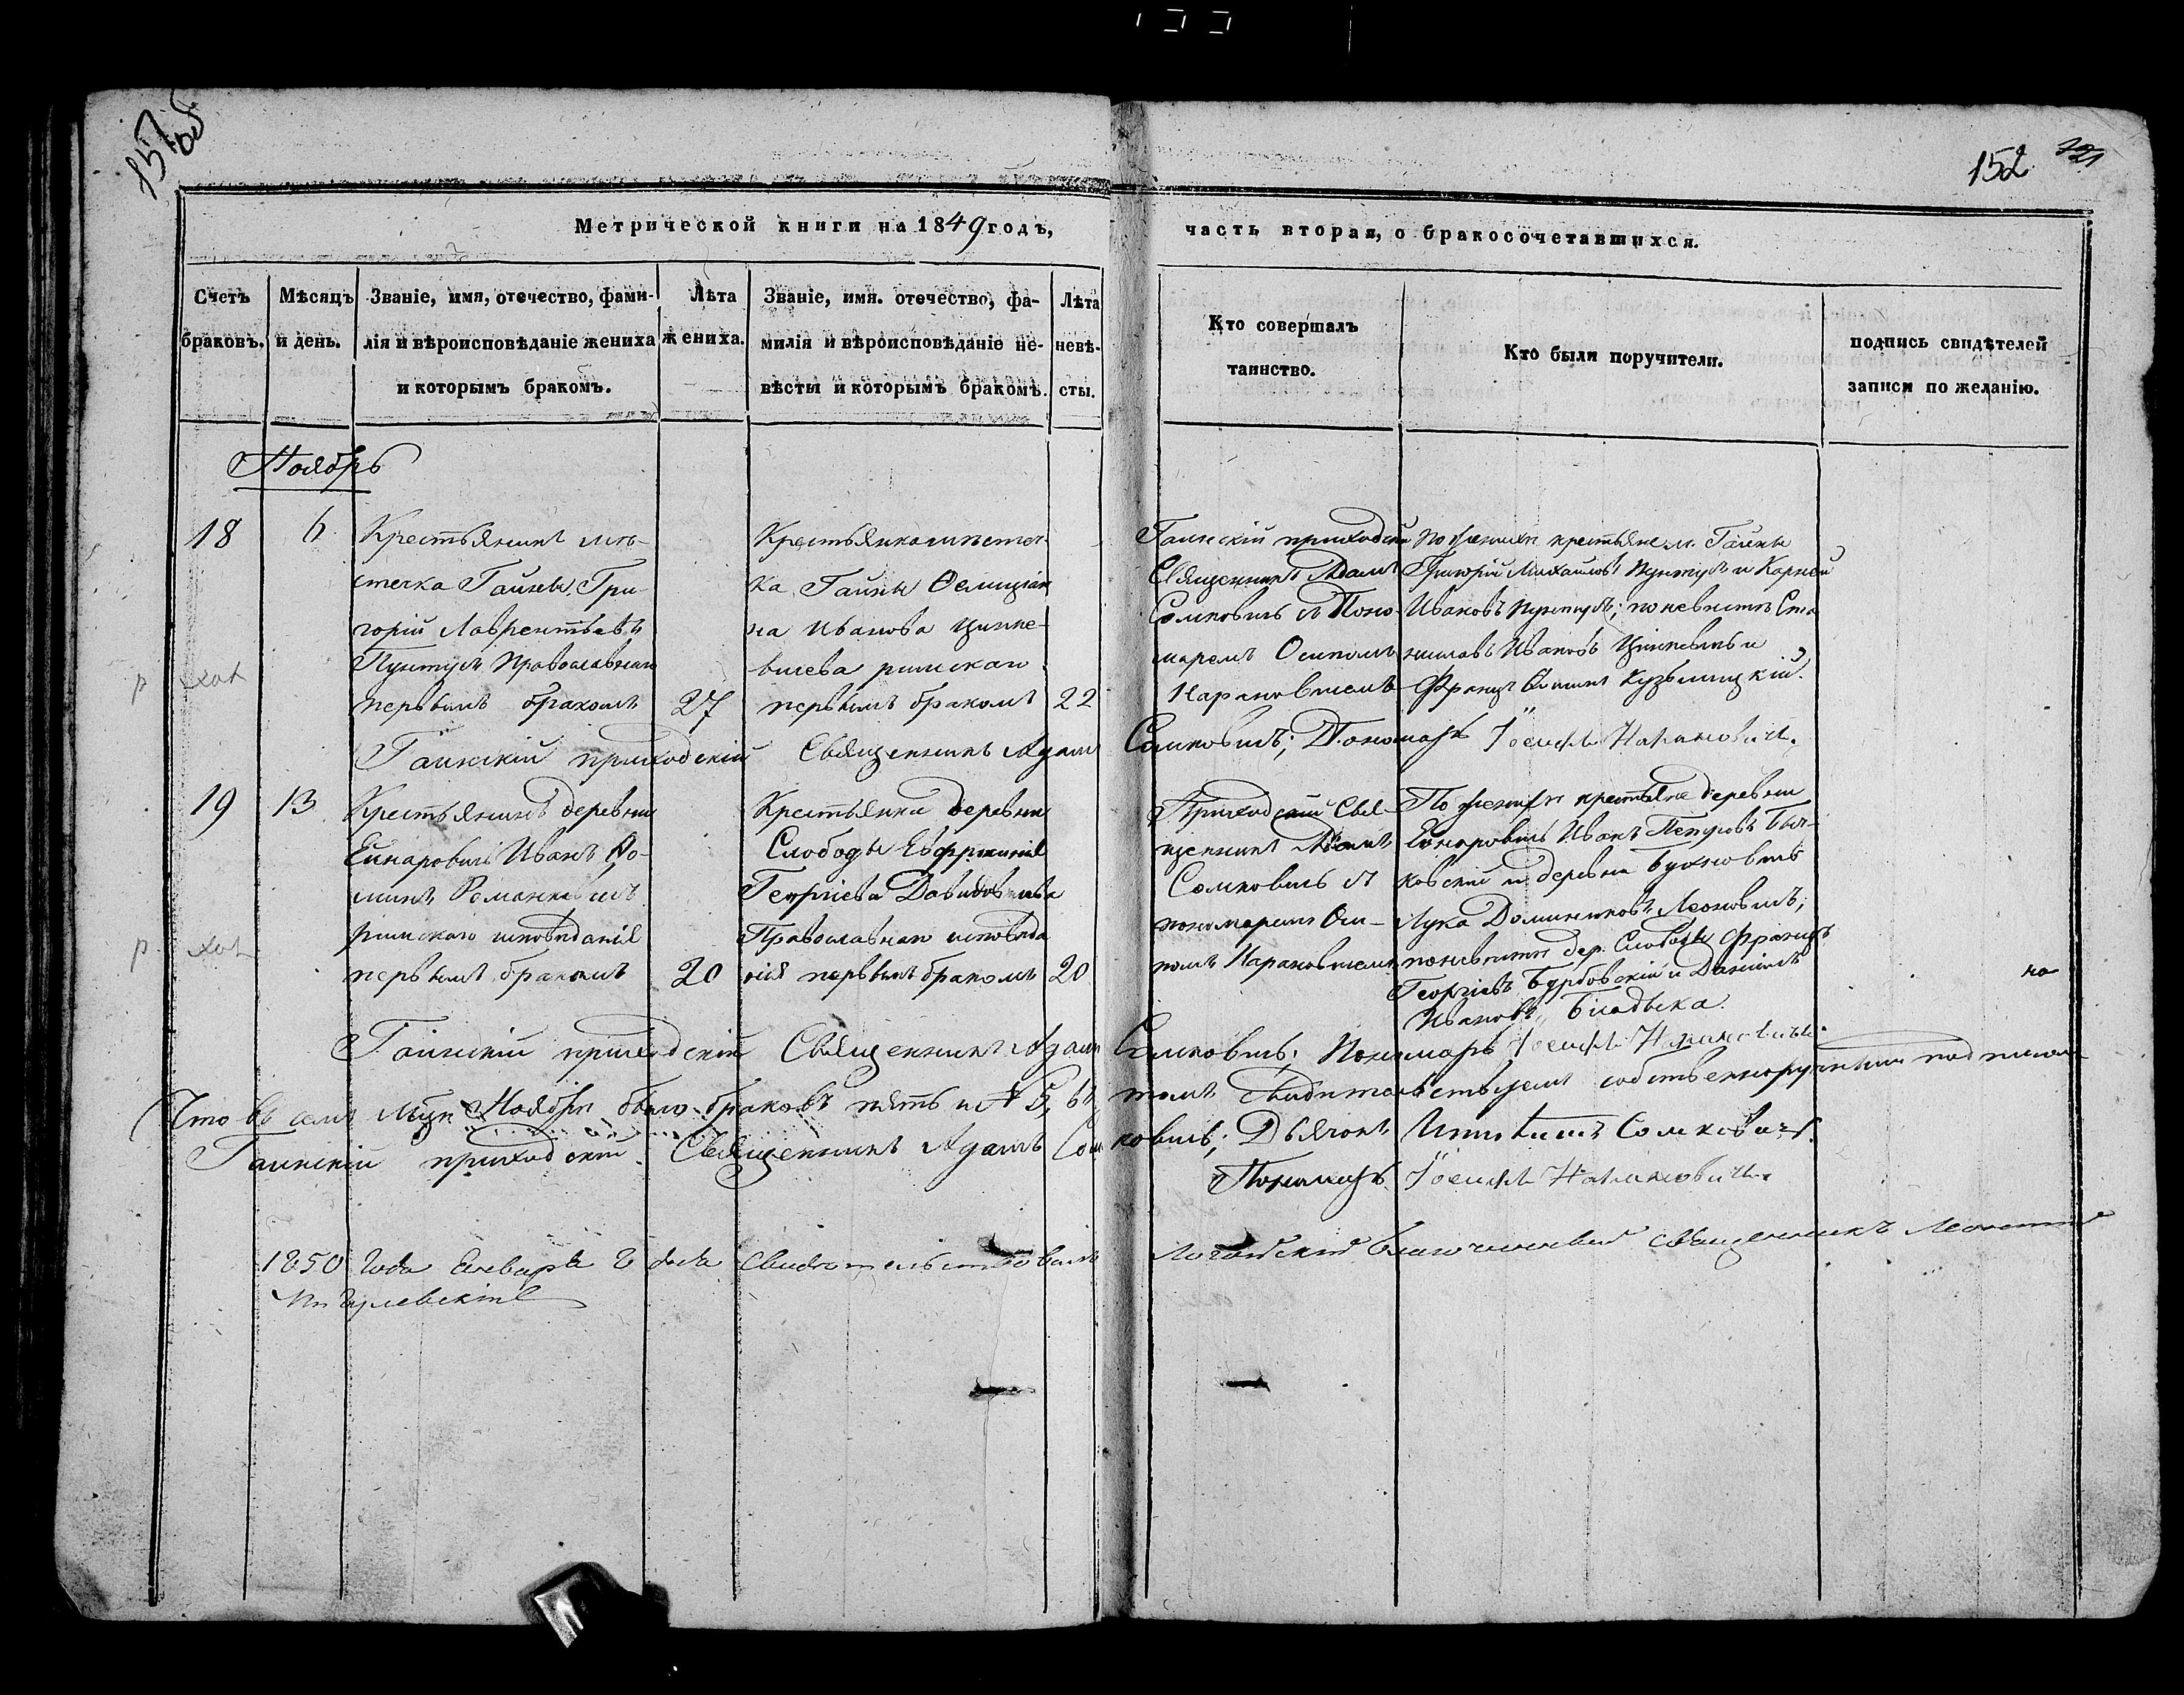 151 об.
152
Метрической книги на 1849 годъ,
часть вторая, о бракосочетавшихся.
Счетъ браковъ.
Мѣсяцъ и день.
Званіе, имя, отечество, фами-
лія и вѣроисповѣданіе жениха
и которымъ бракомъ.
Лѣта
жениха.
Званіе, имя. отечество, фа-
милія и вѣроисповѣданіе не-
вѣсты и которымъ бракомъ.
Лѣта
невѣ-
сты.
Кто совершалъ
таинство.
Кто были поручители.
подпись свидѣтелей
записи по желанію.
Ноябрь
18
6
Крестьянинъ мѣ-
стечка Гайны Гри-
горій Лаврентьевъ
Пунтусъ Православнаго
первымъ бракомъ
27
Крестьянка мѣстеч-
ка Гайны Фелиціан
на Иванова Цинке-
вичева римскаго
первымъ бракомъ
22
Гаинскій приходскій
Священникъ Адамъ
Сомковичъ съ Поно-
маремъ Осипомъ
Нарановичемъ
По женихѣ крестьяне м. Гайны
Григорій Михайловъ Пунтусъ и Карней
Ивановъ Пунтусъ; по невѣстѣ Ста
ниславъ Ивановъ Цинкевичъ и
Францъ Кузьмицкій.
Гаинскій приходскій Священникъ Адамъ Сомковичъ; Пономарь Іосифъ Нарановичъ.
19
13
Крестьянинъ деревни
Ейнаровичъ Иванъ Ѳо-
минъ Романкевичъ
римскаго исповѣданія
первымъ бракомъ
20
Крестьянка деревни
Слободы Евфросинія
Георгіева Давидовичева
Православнаго исповѣда
нія первымъ бракомъ
20
Приходскій Свя-
щенникъ Адамъ
Сомковичъ съ
пономаремъ Оси-
помъ Нарановичемъ
По женихѣ крестьяне деревни
Ейнаровичъ Иванъ
ковскій и деревни
Лука Доминиковъ Леоновичъ;
по невѣстѣ дер. Слободы Францъ
Георгіевъ Бурбовскій и Даніилъ
Ивановъ
Гаинскій приходскій Священникъ Адамъ Сомковичъ; Пономарь Іосифъ Нарановичъ.
Что въ семъ мцѣ Ноябрѣ было браковъ пять и № 5, въ томъ свидѣтельствуемъ собственноручнымъ подписомъ
Гаинскій приходскій Священникъ Адамъ Сомковичъ; Дьячокъ Сомковичъ.
Пономарь Іосифъ Нарановичъ.
1850 года Января дня свидѣтельствовалъ Логойскій благочинный священникъ